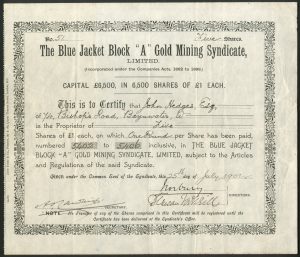 No. 51 Five Shares.
The Blue Jacket Block "A" Gold Mining Syndicate,
LIMITED.
(Incorporated under the Companies Acts, 1862 to 1898.)
CAPITAL £6,500, IN 6,500 SHARES OF £1 EACH.
This is to Certify that John Hedges, Esq.
of Bishop's Road, Bayswater, W.
is the Proprietor of Five
Shares of £1 each, on which One Pound per Share has been paid,
numbered 5602 to 5606 inclusive, in THE BLUE JACKET
BLOCK "A" GOLD MINING SYNDICATE, LIMITED, subject to the Articles
and Regulations of the said Syndicate.
GIVEN under the Common Seal of the Syndicate, this 25th day of July 1901
Norbury
DIRECTORS.
SECRETARY.
NOTE.—No Transfer of any of the Shares comprised in this Certificate will be registered until the
Certificate has been delivered at the Syndicate's Office.